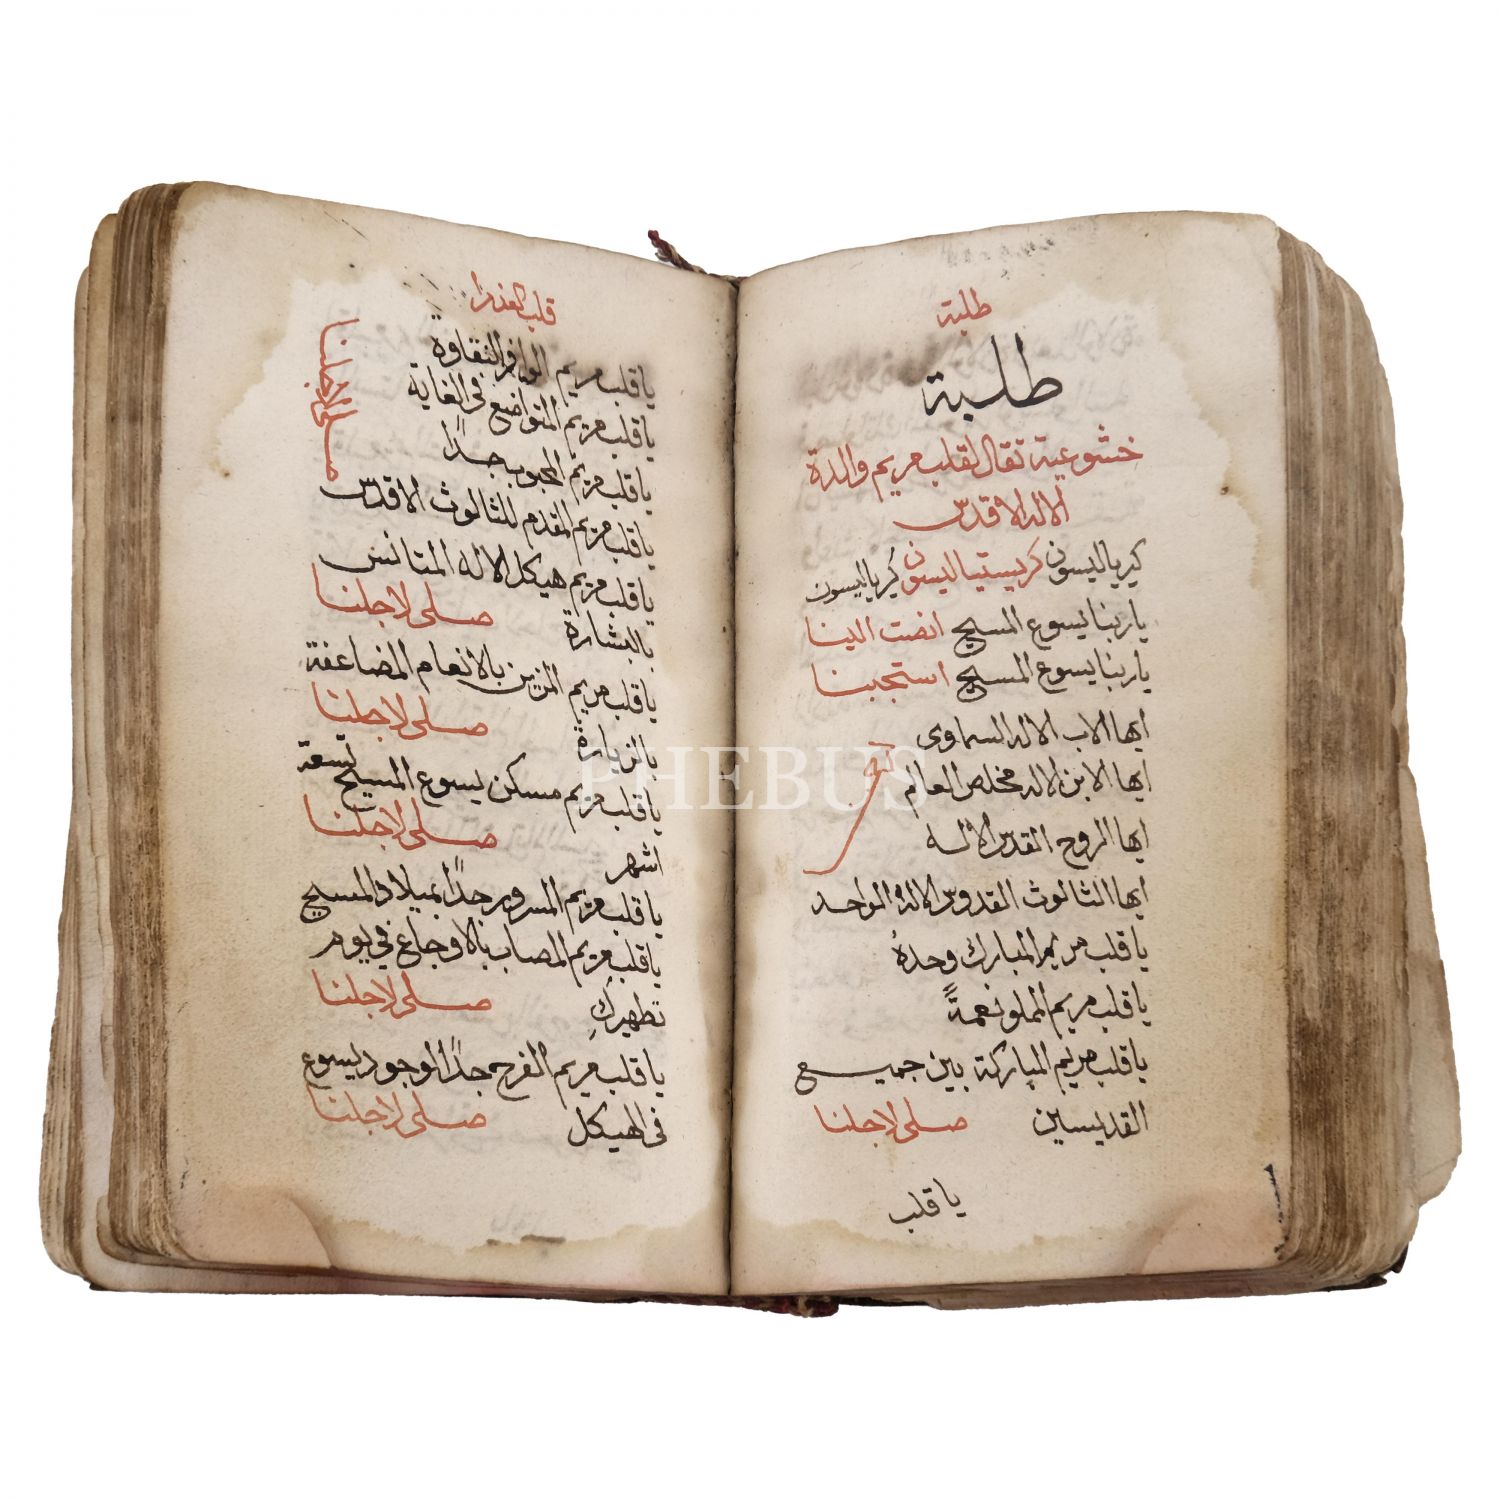 طلبة
طلبة
خشوعية تقال لقلب مريم والدة
الاله الاقدس
كيرياليسون كريستياليسون كيرياليسون
ياربنا يسوع المسيح انصت الينا
ياربنا يسوع المسيح استجبنا
ايها الاب الاله السماوى
ايها الابن الاله مخلص العالم
ايها الروح القدس الاله
ايها الثالوث القدوس الاله الواحد
يا قلب مريم المبارك وحدهُ
يا قلب مريم المملو نعمةً
يا قلب مريم المباركة بين جميع
القديسين صلى لاجلنا
يا قلب
قلب العذرا
يا قلب مريم الوافر النقاوة
يا قلب مريم المتواضع فى الغاية
يا قلب مريم المحبوب جدًا
يا قلب مريم المقدم للثالوث الاقدس
صلى لاجلنا
يا قلب مريم هيكل الاله المتانس
بالبشارة صلى لاجلنا
يا قلب مريم المزين بالانعام المضاعفة
بالزيارة صلى لاجلنا
يا قلب مريم مسكن يسوع المسيح تسعة
اشهر صلى لاجلنا
يا قلب مريم المسرور جدًا بميلاد المسيح
يا قلب مريم المصاب بالاوجاع في يوم
تطهيركِ صلى لاجلنا
يا قلب مريم الفرح جدًا لوجود يسوع
فى الهيكل صلى لاجلنا
PHEBUS